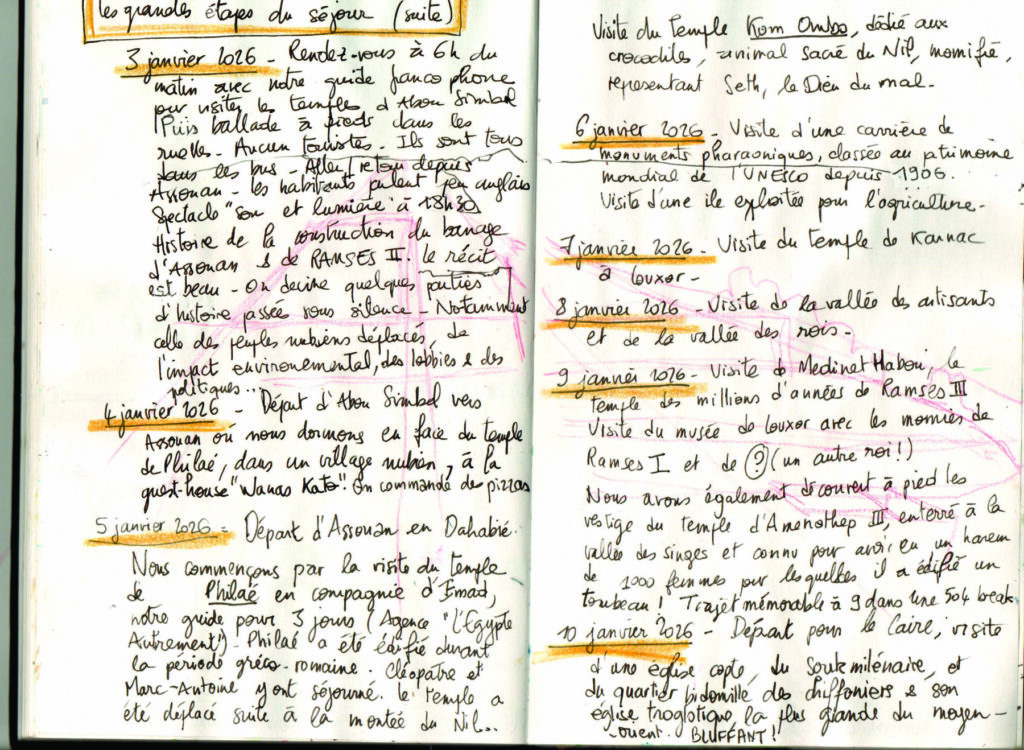 les grandes étapes du séjour (suite)
3 janvier 2026 - Rendez-vous à 6h du
matin avec notre guide francophone
pour visiter les temples d'Abou Simbel
Puis ballade à pieds dans les
ruelles - Aucun touristes - Ils sont tous
dans les bus - Aller/retour depuis
Assouan - les habitants parlent peu anglais
Spectacle "son et lumière" à 18h30
Histoire de la construction du barrage
d'Assouan & de RAMSES II. le récit
est beau - On devine quelques parties
d'histoire passées sous silence - Notamment
celle des peuples nubiens déplacés, de
l'impact environemental, des lobbies & des
politiques...
4 janvier 2026 - Départ d'Abou Simbel vers
Assouan où nous dormons en face du temple
de Philaé, dans un village nubien, à la
guest-house "Wanas Kato". On commande des pizzas
5 janvier 2026 = Départ d'Assouan en Dahabié..
Nous commençons par la visite du temple
de Philaé en compagnie d'Emad,
notre guide pour 3 jours (Agence "L'Egypte
Autrement") - Philaé a été édifié durant
la période gréco-romaine. Cléopâtre et
Marc-Antoine y ont séjourné. le temple a
été déplacé suite à la montée du Nil...
Visite du temple Kom Ombo, dédié aux
crocodiles, animal sacré du Nil, momifié,
représentant Seth, le Dieu du mal -
6 janvier 2026 - Visite d'une carrière de
monuments pharaoniques, classée au patrimoine
mondial de l'UNESCO depuis 1906.
Visite d'une ile exploitée pour l'agriculture -
7 janvier 2026 - Visite du temple de Karnac
à Louxor -
8 janvier 2026 - Visite de la vallée des artisants
et de la vallée des rois -
9 janvier 2026 - Visite de Medinet Habou, le
temple des millions d'années de Ramses III
Visite du musée de Louxor avec les momies de
Ramses I et de ? (un autre roi!)
Nous avons également découvert à pied les
vestige du temple d'Amenothep III, enterré à la
vallée des singes et connu pour avoir eu un harem
de 1000 femmes pour lesquelles il a édifié un
tombeau ! Trajet mémorable à 9 dans une 504 break
10 janvier 2026 - Départ pour le Caire, visite
d'une église copte, du Souk milénaire, et
du quartier bidonville des chiffoniers & son
église troglotique, la plus grande du moyen-
orient. BLUFFANT !